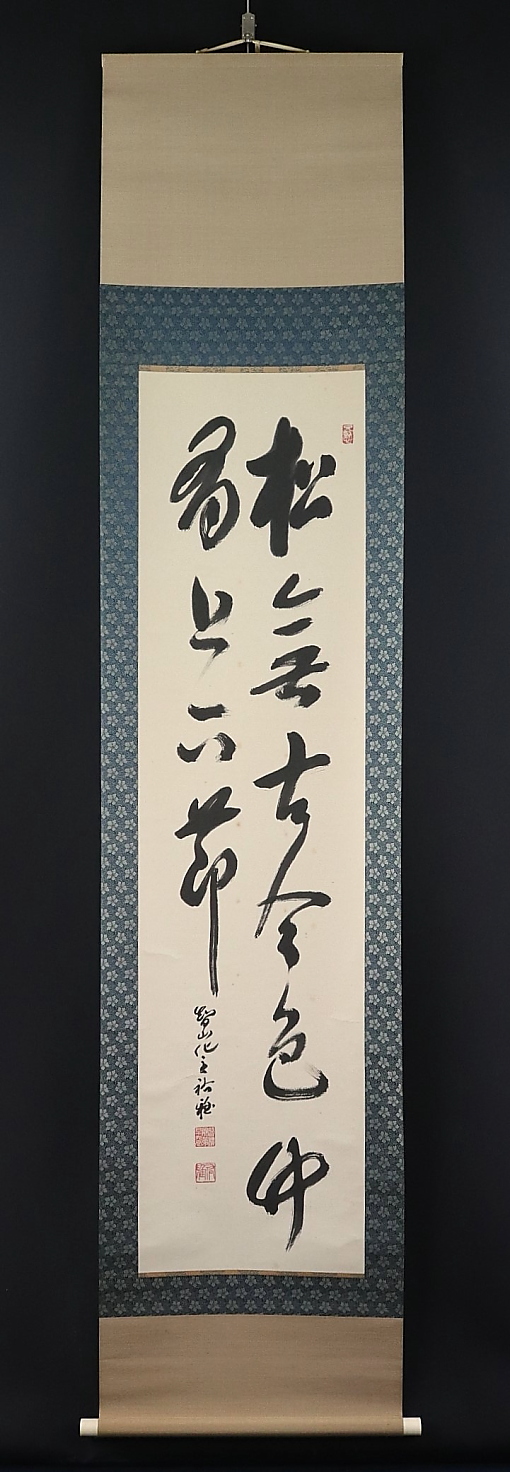 松無古今色竹
有上下節
智山化主裕雅